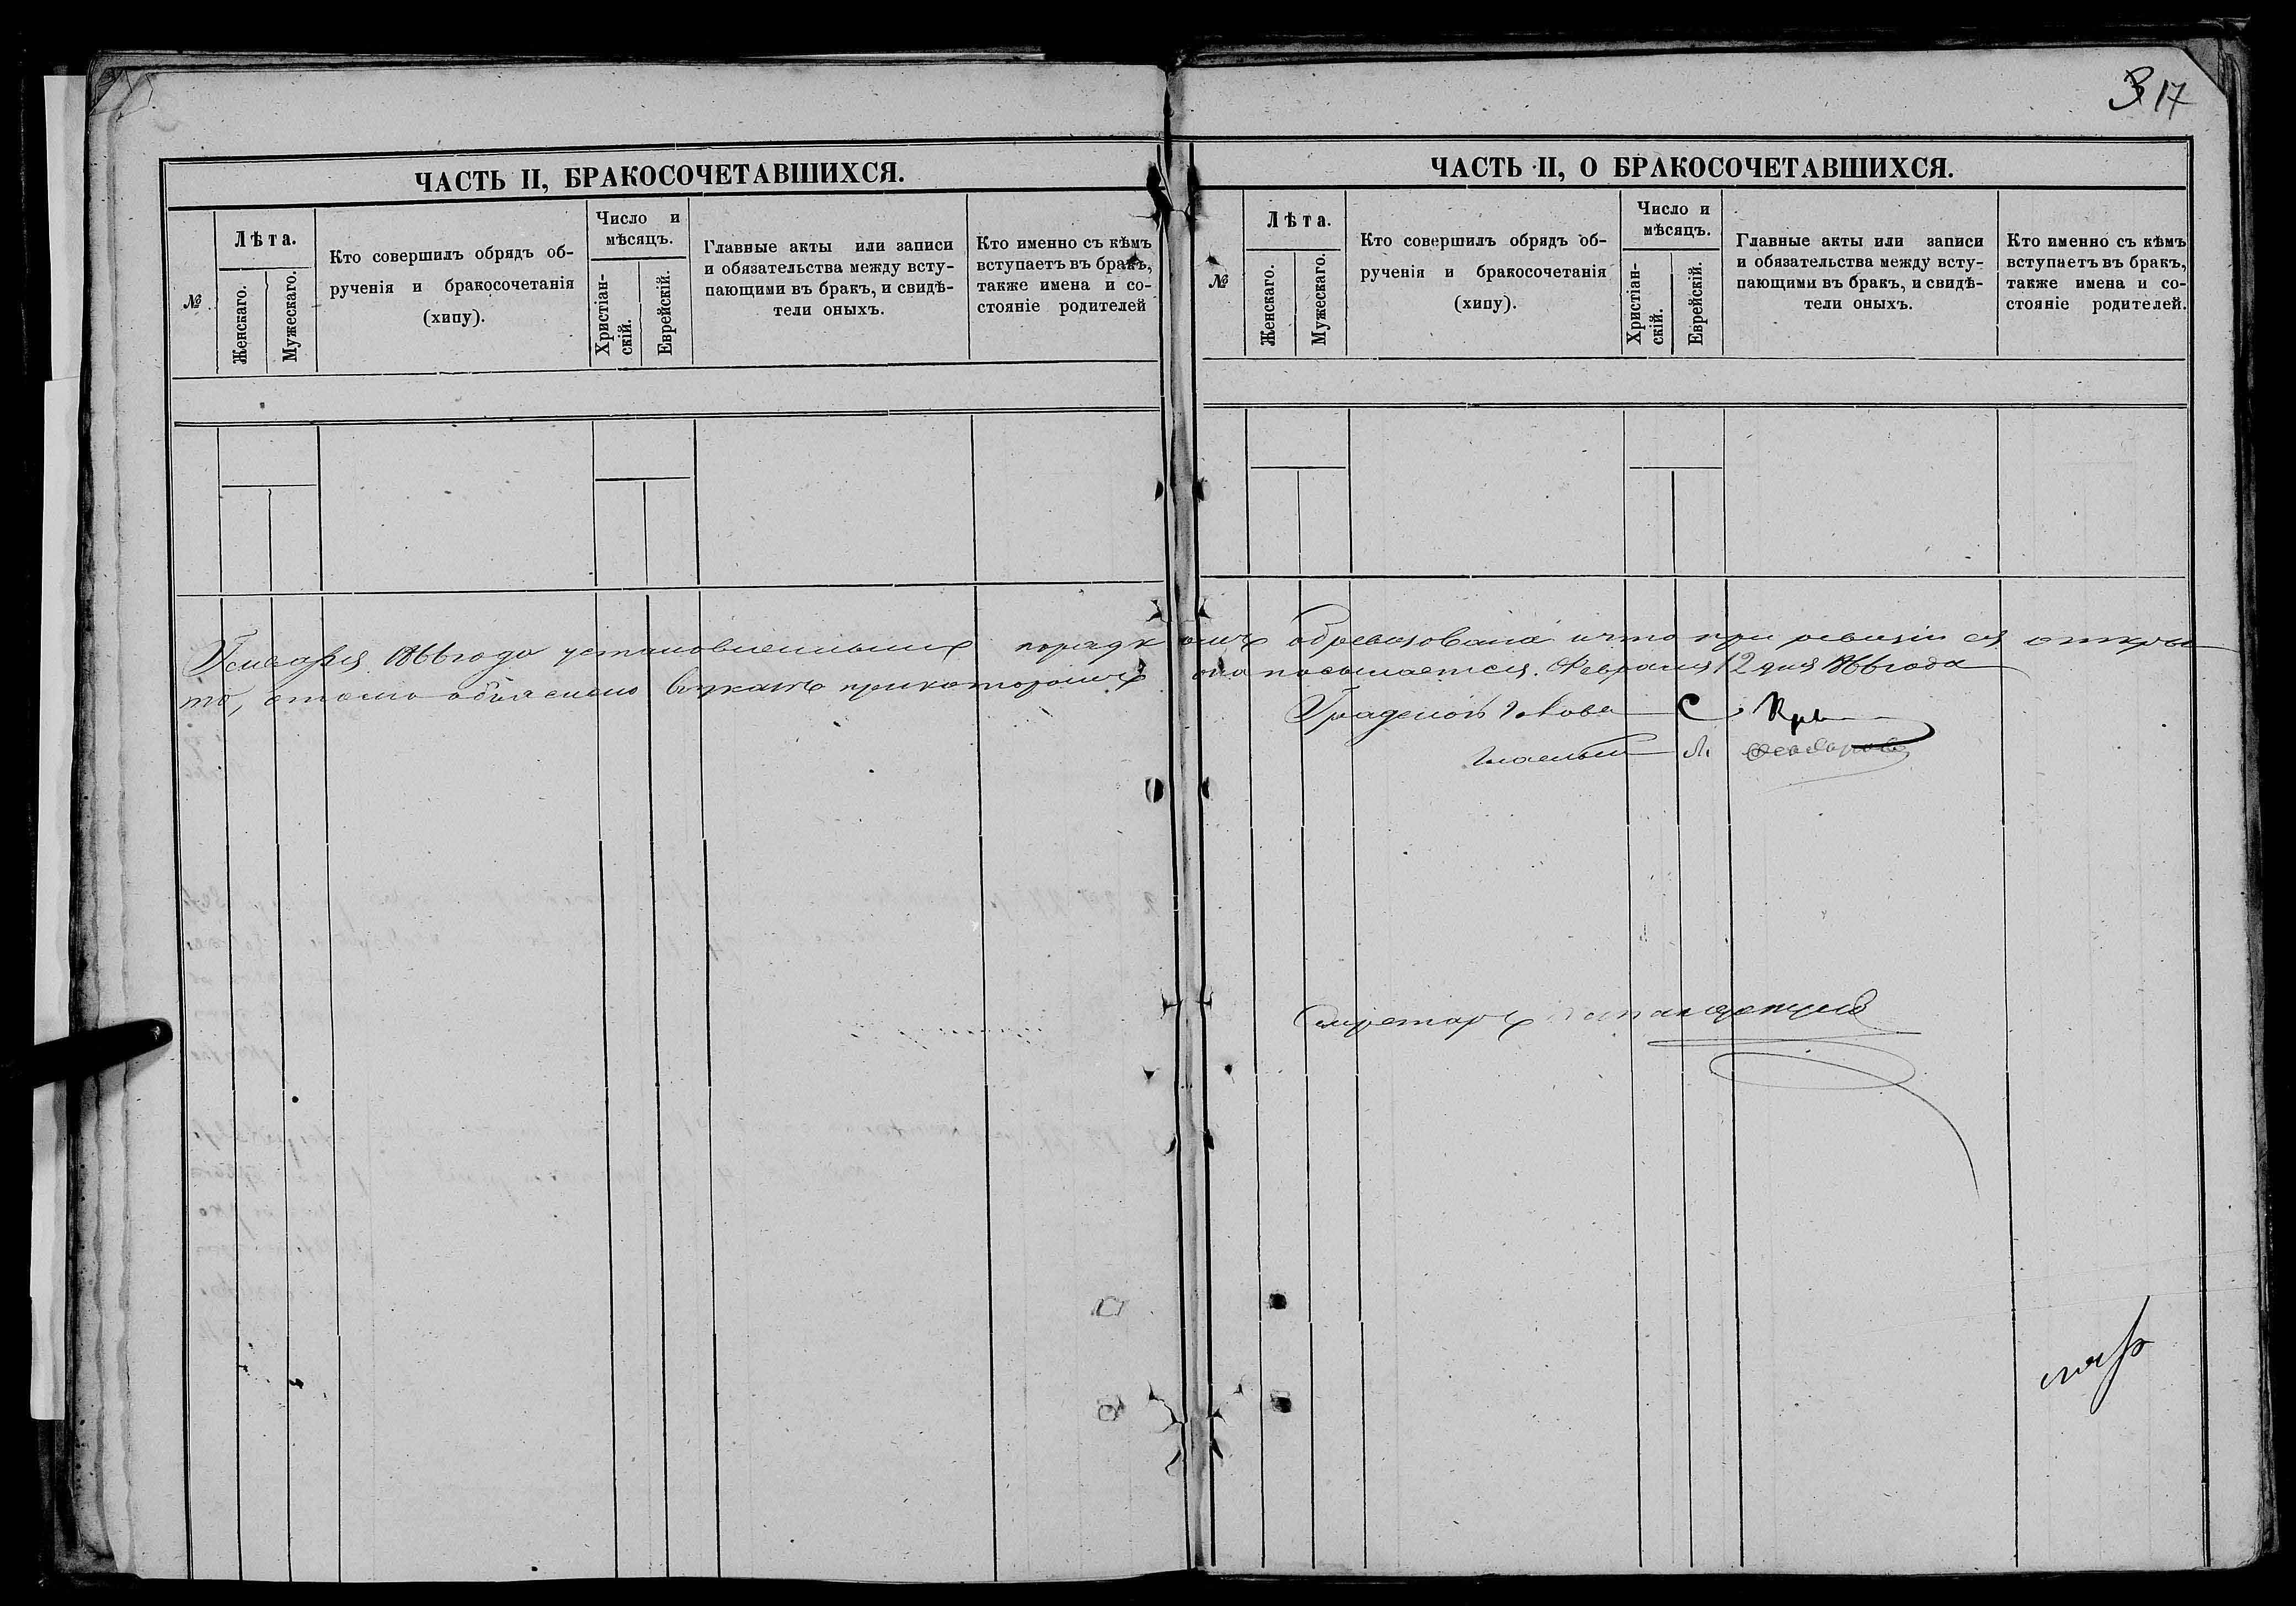 3 17
ЧАСТЬ II, БРАКОСОЧЕТАВШИХСЯ.
№
Лѣта.
Женскаго.
Мужескаго.
Кто совершилъ обрядъ об-
рученія и бракосочетанія
(хипу).
Число и
мѣсяцъ.
Христіан-
скій.
Еврейскій.
Главные акты или записи
и обязательства между всту-
пающими въ бракъ, и свидѣ-
тели оныхъ.
Кто именно съ кѣмъ
вступаетъ въ бракъ,
также имена и со-
стояніе родителей
ЧАСТЬ II, О БРАКОСОЧЕТАВШИХСЯ.
№
Лѣта.
Женскаго.
Мужескаго.
Кто совершилъ обрядъ об-
рученія и бракосочетанія
(хипу).
Число и
мѣсяцъ.
Христіан-
скій.
Еврейскій.
Главные акты или записи
и обязательства между всту-
пающими въ бракъ, и свидѣ-
тели оныхъ.
Кто именно съ кѣмъ
вступаетъ въ бракъ,
также имена и со-
стояніе родителей.
Генваря 1866 года установленнымъ порядкомъ обревизована и что при ревизіи ея откры
то, о томъ объяснено въ указѣ при которомъ она посылается. Февраля 12 дня 1866 года
Градской Голова С
Гласный Феодоровъ
Секретарь